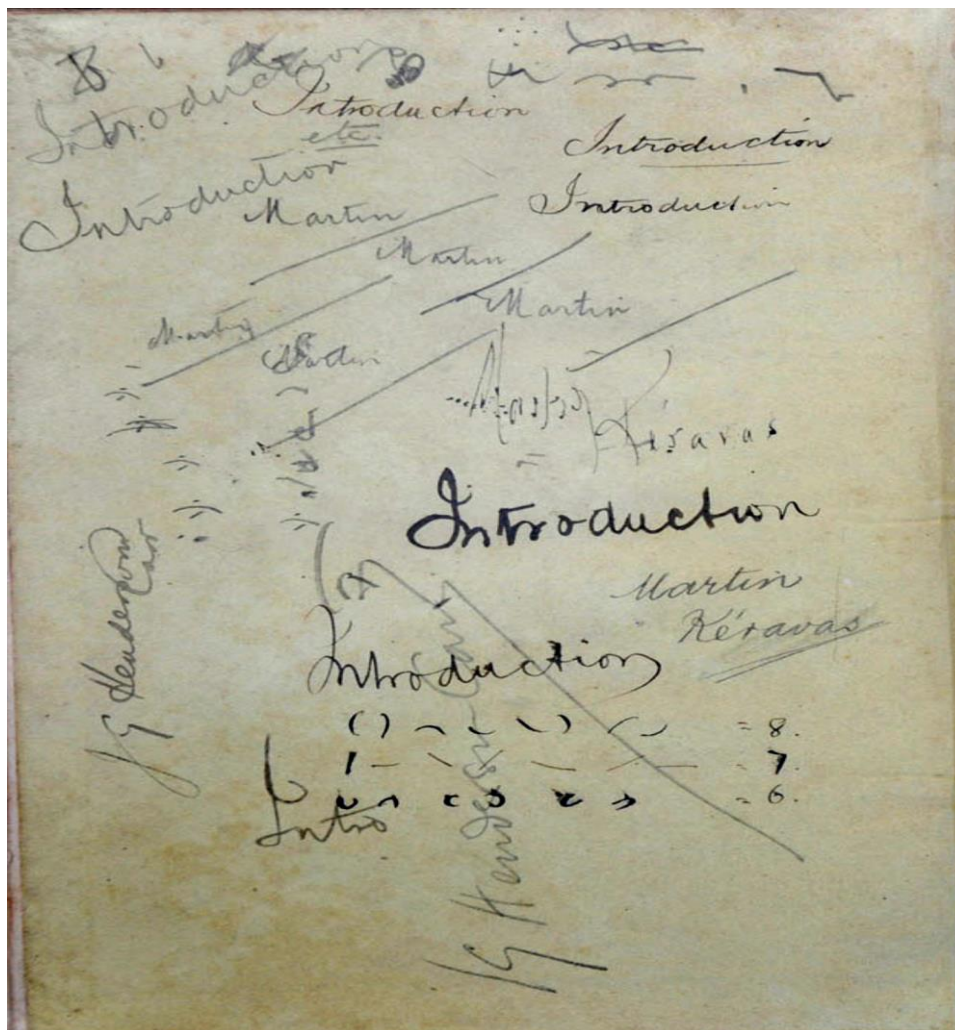 Introduction
Introduction
etc.
Introduction
Introduction
Introduction
Martin
Martin
Martin
Martin
Martin
Kéravas
Introduction
Martin
Kéravas
Introduction
= 8.
= 7.
= 6.
Intro
J G Henderson
Carr
J G Henderson Carr